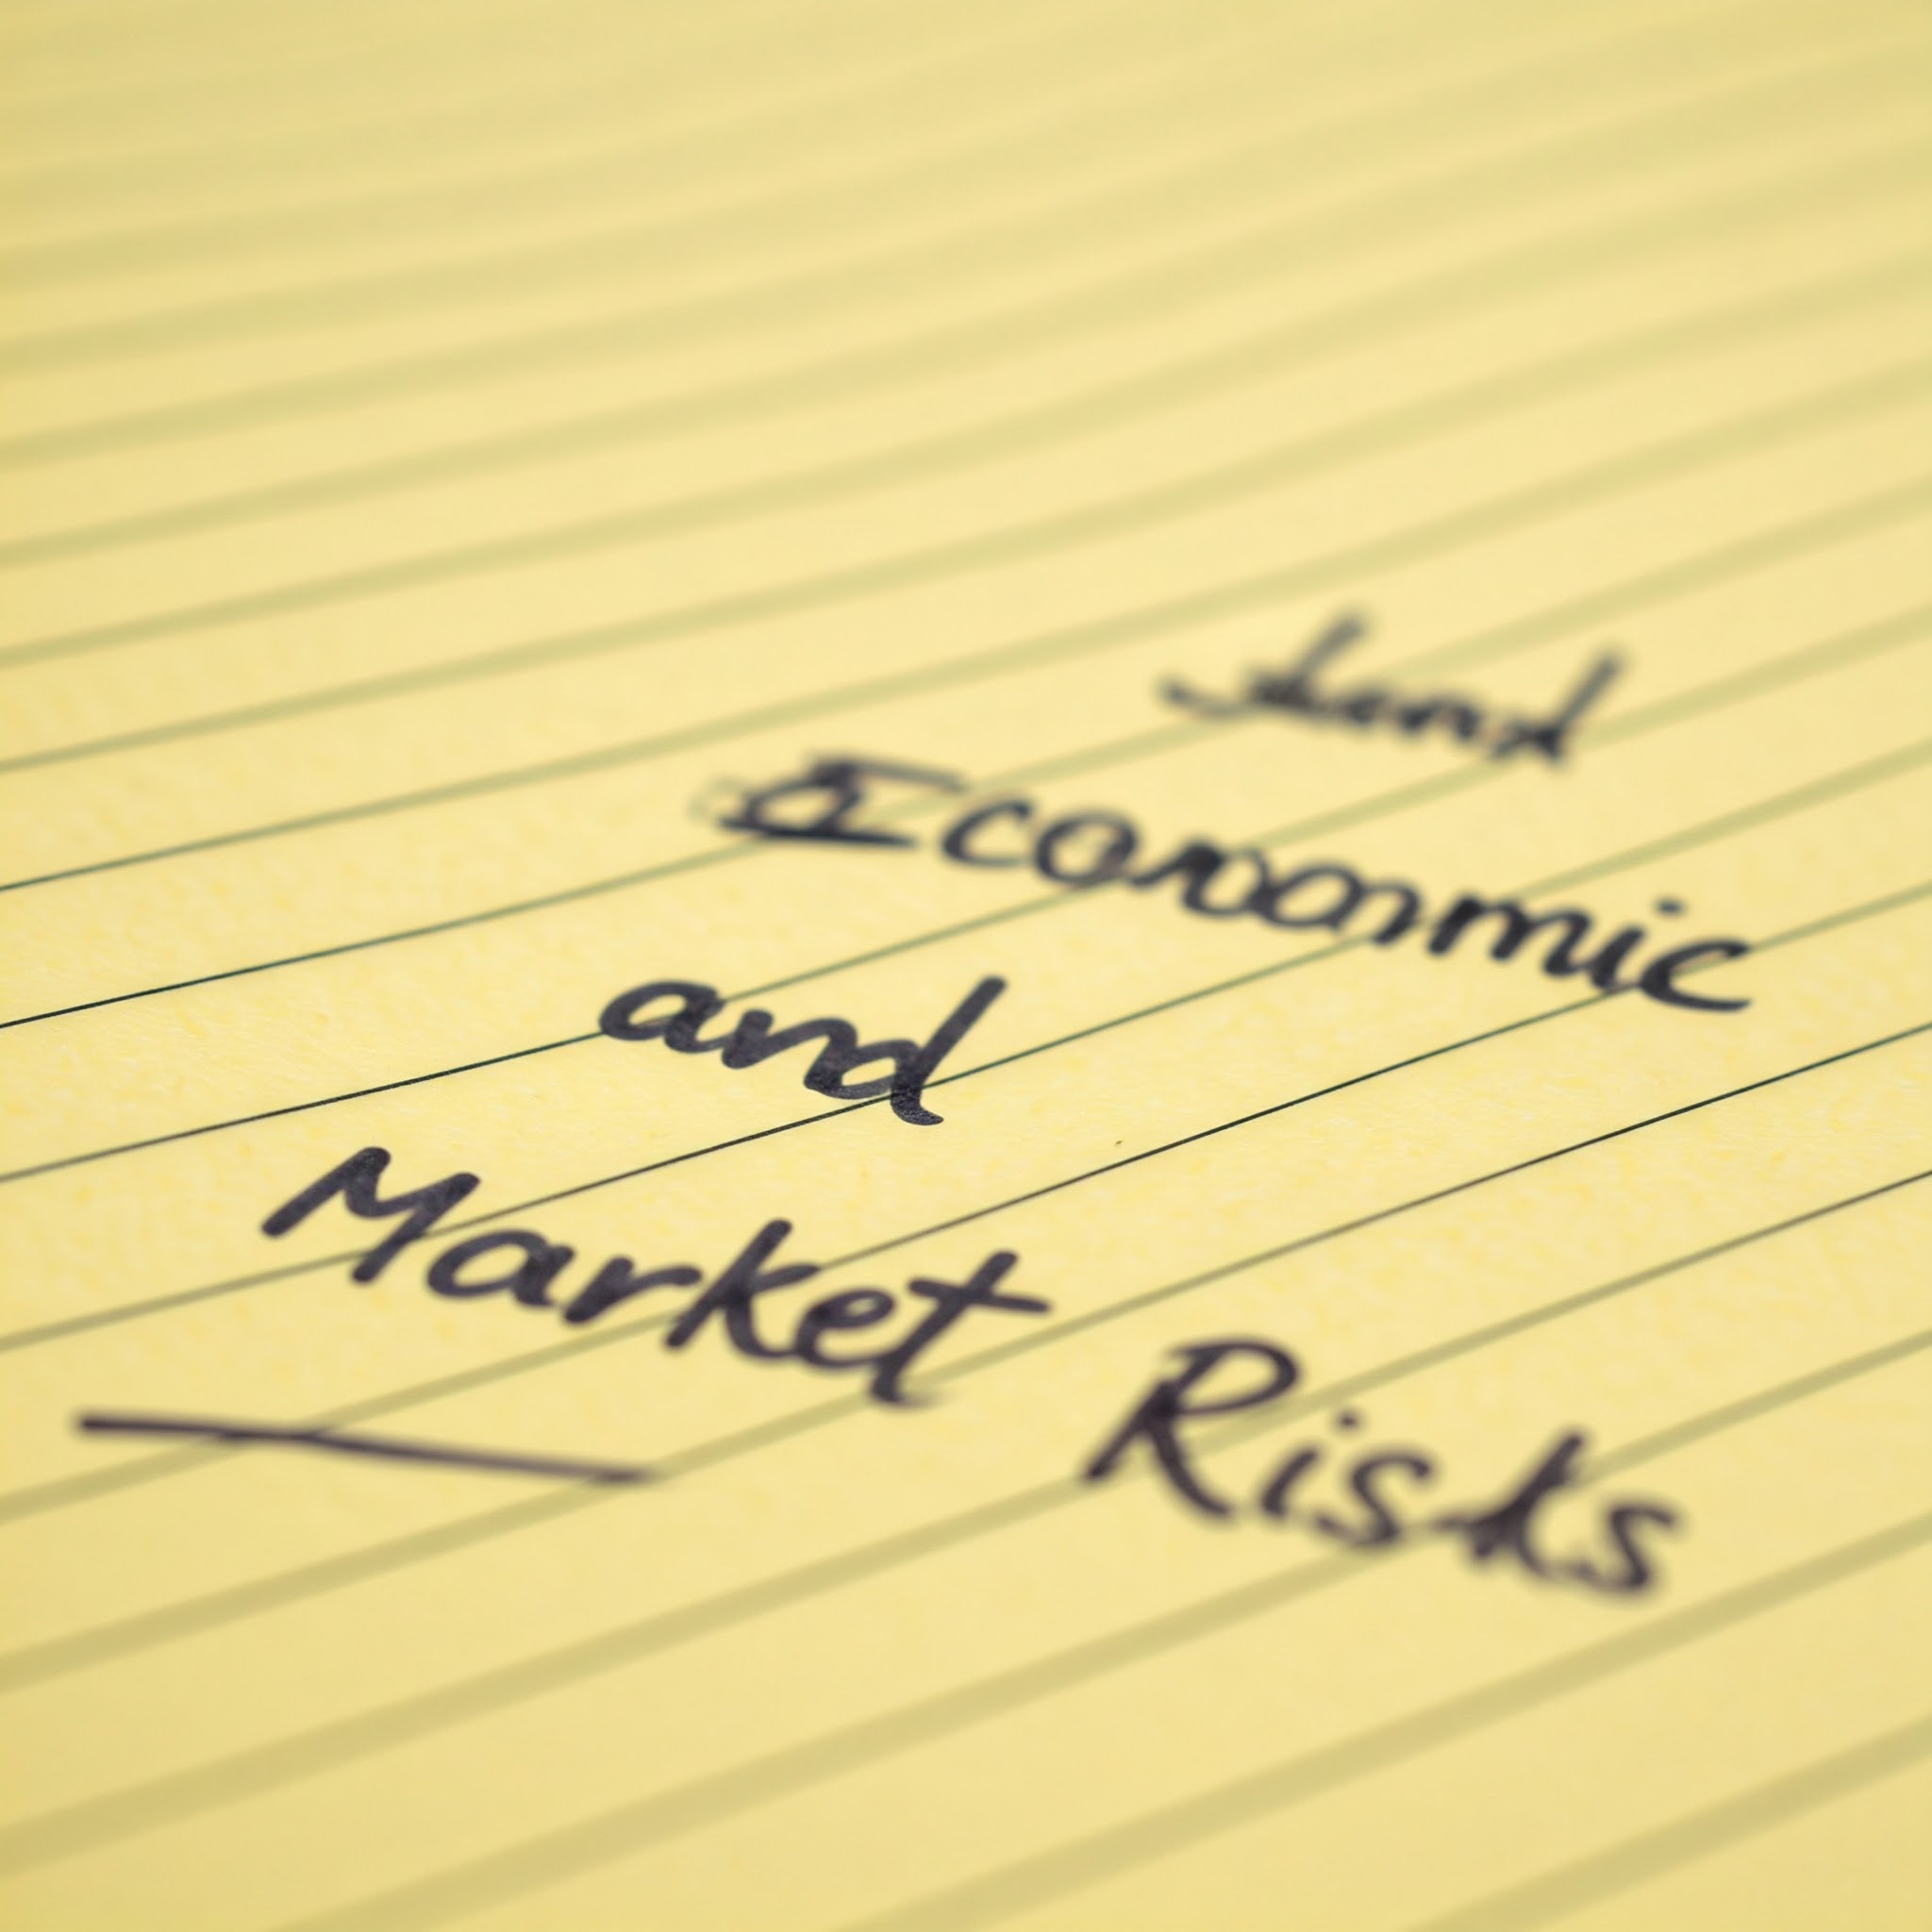 Economic
and
Market Risks